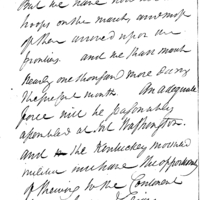 But we have now
troops on the march, and most
of them arrived upon the
frontiers and we shall march
nearly one thousand more during
the present month. An adequate
force will be seasonably
assembled at Fort Washington.
and the Kentucky mounted
militia will have the opportunity
of shewing to the Continent